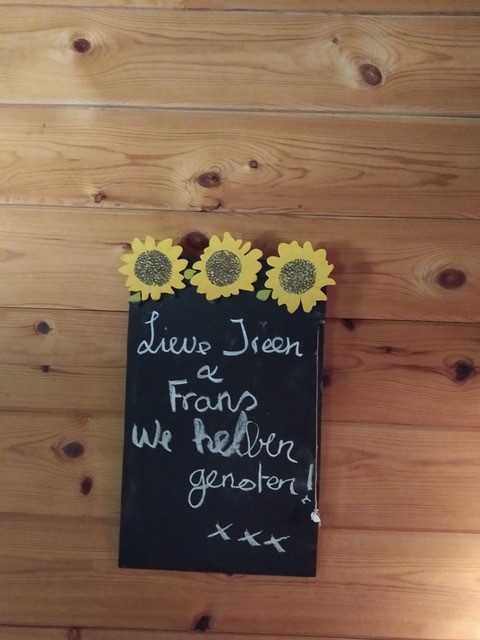 Lieve Ireen
&
Frans
We hebben
genoten!
xxx